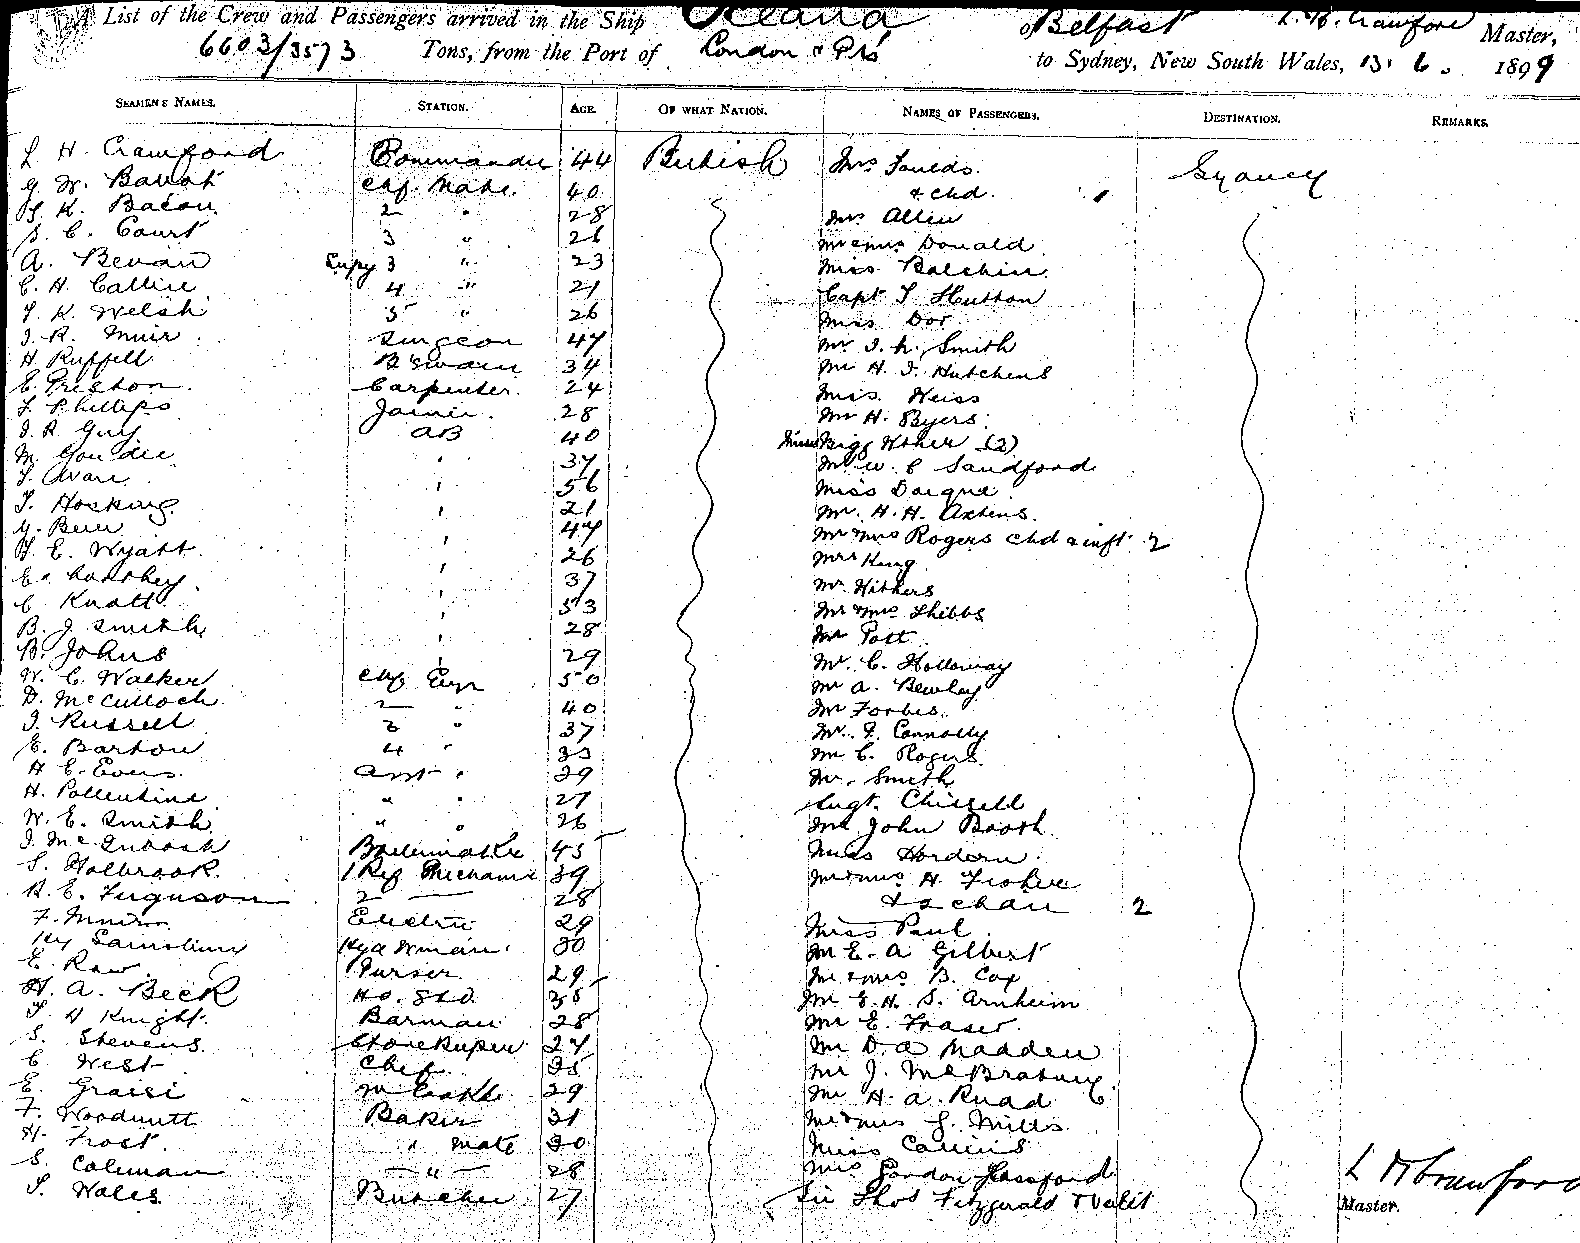 A List of the Crew and Passengers arrived in the Ship Belfast L. H. Crawford Master,
6603/3573 Tons, from the Port of London & Pts to Sydney, New South Wales, 13. 6. 1899
SEAMENS NAMES. STATION. AGE. OF WHAT NATION. NAMES OF PASSENGERS. DESTINATION. REMARKS.
L H. Crawford Commander 44 British Mrs Foulds Sydney
G. W. Chf Mate 40 & chd
H. K. Bacon 2 " 28 Mrs Allen
C. Court 3 " 26 Mr & Mrs Donald
A. Bevan Supy 3 " 23 Miss Balchin
C. H. 4 " 21 Capt T Hutton
T. K. Welsh 5 " 26 Miss
J. R. Muir Surgeon 47 Mr J. Smith
H. Ruffell B'Swain 34 Mr H. J. Hutchens
E. Preston Carpenter 24 Miss Weiss
T. Phillips Joiner 28 Mr H. Byers
J. R. Guy AB 40 Misses Bigg Wither (2)
M. Goudie " 37 Mr W. C Sandford
T. " 56 Miss
T. Hosking " 21 Mr. H. H. Axtens
" 47 Mr Mrs Rogers chd & inft 2
H. E. Wyatt " 26 Mrs King
" 37 Mr Withers
C. Knott " 53 Mr & Mrs
B. J. Smith " 28 Mr Pott
B. Johns " 29 Mr. C. Holloway
W. C. Walker Chf Engr 50 Mr A. Bewley
D. McCulloch 2 " 40 Mr Forbes
J. Russell 3 " 37 Mr. J. Connolly
E. Barton 4 " 33 Mr C. Rogers
H C. Evers Asst " 29 Mr. Smith
H. Pollentine " " 27 Sergt. Chissell
W. E. Smith " " 26 Mr John Booth
J. McIntosh Boilermaker 45 Miss Hordern
S. Holbrook 1 Ref Mechanic 39 Mr & Mrs H. Fisher
H. E. Ferguson 2 — 28 & 2 chdn 2
F. Electn 29 Miss Paul
Hy 30 Mr E. A Gilbert
E. Raw Purser 29 Mr & Mrs B. Cox
H. A. Beck Hd. Std. 38 Mr E. H. S. Arnheim
T H Knight Barman 28 Mr E. Fraser
S. Stevens Storekeeper 27 Mr D. A Madden
C West Chef 35 Mr J. McBratney
E. 29 Mr H. A. Ruad
F. Woodnutt Baker 31 Mr & Mrs G. Mills
H. Frost " mate 30 Miss
S. Coleman — " — 28 Mrs Gordon
T. Wales Butcher 27 Sir Thos Fitzgerald & Valet
L H Crawford
Master.